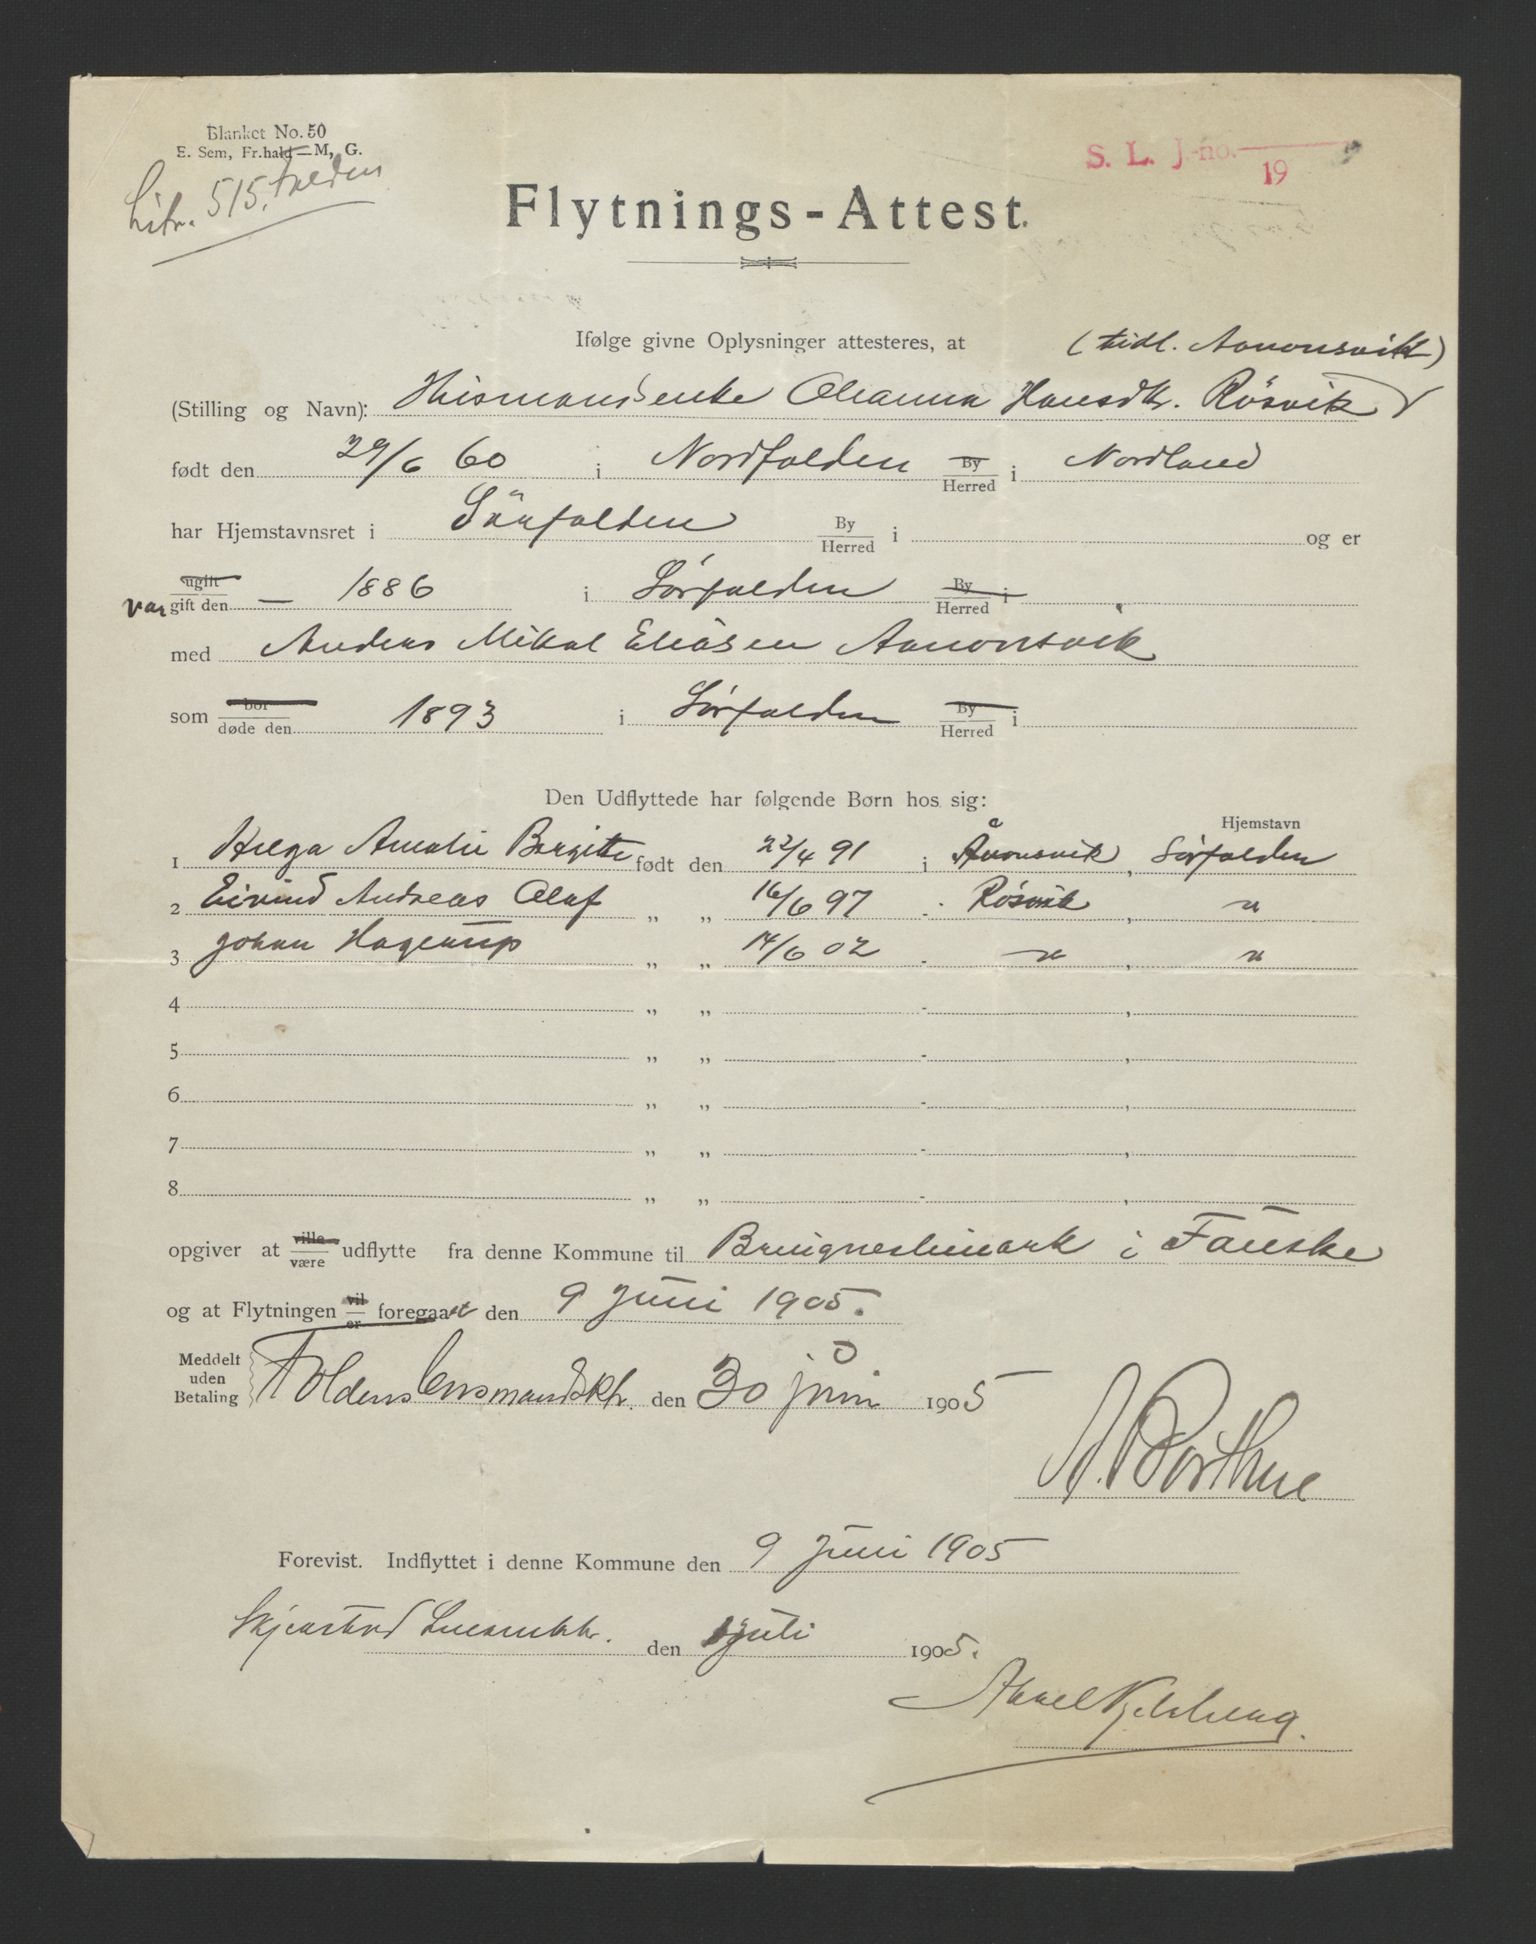 Blanket No. 50
E. Sem, Fr.hald — M, G.
Litr. 515. Folden
S. L. J.-no.
19
Flytnings-Attest.
Ifølge givne Oplysninger attesteres, at
(tidl. Aanonsvik)
(Stilling og Navn): Husmandsenke Oleanna Hansdtr. Røsvik
født den 29/6 60 i Nordfolden By Herred i Nordland
har Hjemstavnsret i Sørfolden By Herred i og er
ugift
var gift den — 1886 i Sørfolden By Herred i
med Anders Mikal Eliasen Aanonsvik
som bor døde den 1893 i Sørfolden By Herred i
Den Udflyttede har følgende Børn hos sig:
Hjemstavn
1 Helga Amalie Bergitte født den 22/4 91 i Ånonsvik, Sørfolden
2 Eivind Andreas Olaf „ „ 16/6 97 - Røsvik, "
3 Johan Hagerup „ „ 14/6 02 - ", "
4 „ „ - ,
5 „ „ - ,
6 „ „ - ,
7 „ „ - ,
8 „ „ - ,
opgiver at ville være udflytte fra denne Kommune til i Fauske
og at Flytningen vil er foregaaet den 9 Juni 1905.
Meddelt uden Betaling Foldens lensmandsktr. den 30 juni 1905
A. Borthne
Forevist. Indflyttet i denne Kommune den 9 Juni 1905
Skjerstad Lensmktr. den juli 1905.